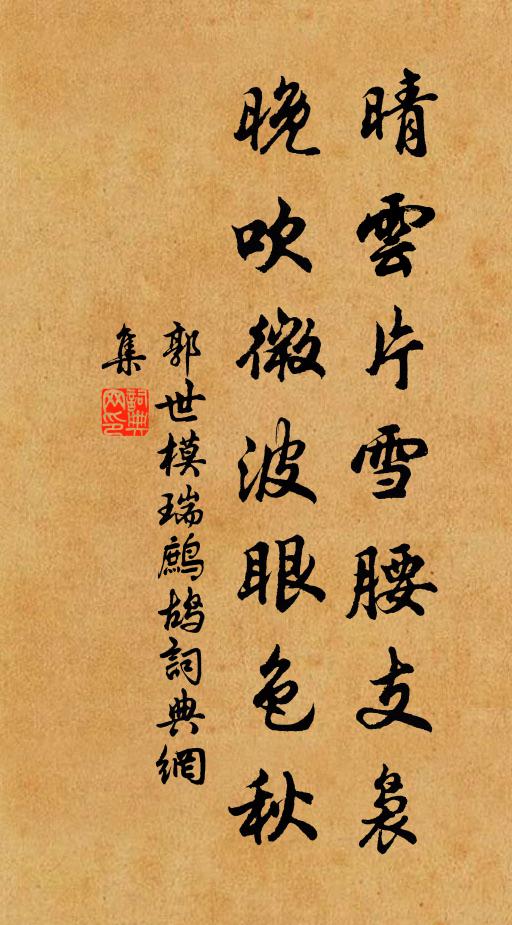 晴雲片雪腰支裊
晚吹微波眼色秋
郭世模瑞鷓鴣詞典網
集
詞典網印